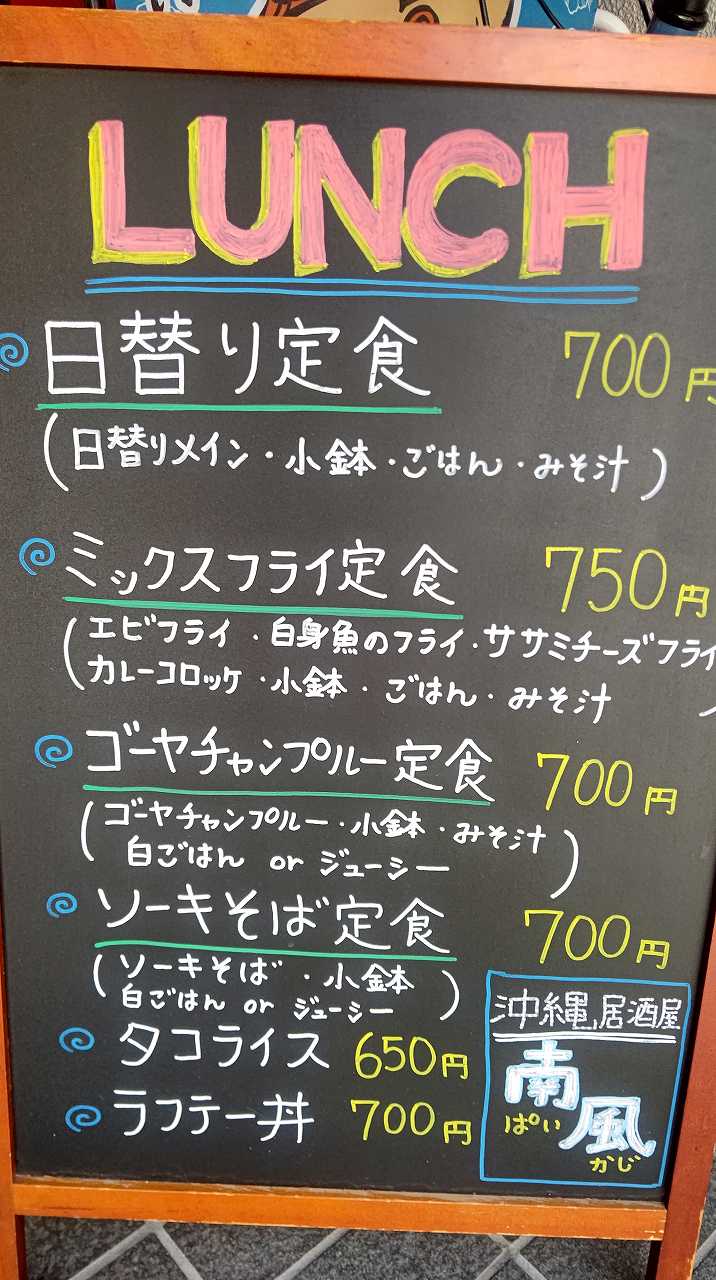 LUNCH
日替り定食 700円
(日替りメイン・小鉢・ごはん・みそ汁)
ミックスフライ定食 750円
(エビフライ・白身魚のフライ・ササミチーズフライ
カレーコロッケ・小鉢・ごはん・みそ汁)
ゴーヤチャンプルー定食 700円
(ゴーヤチャンプルー・小鉢・みそ汁
白ごはん or ジューシー)
ソーキそば定食 700円
(ソーキそば・小鉢
白ごはん or ジューシー)
タコライス 650円
ラフテー丼 700円
沖縄居酒屋
南風
ぱいかじ